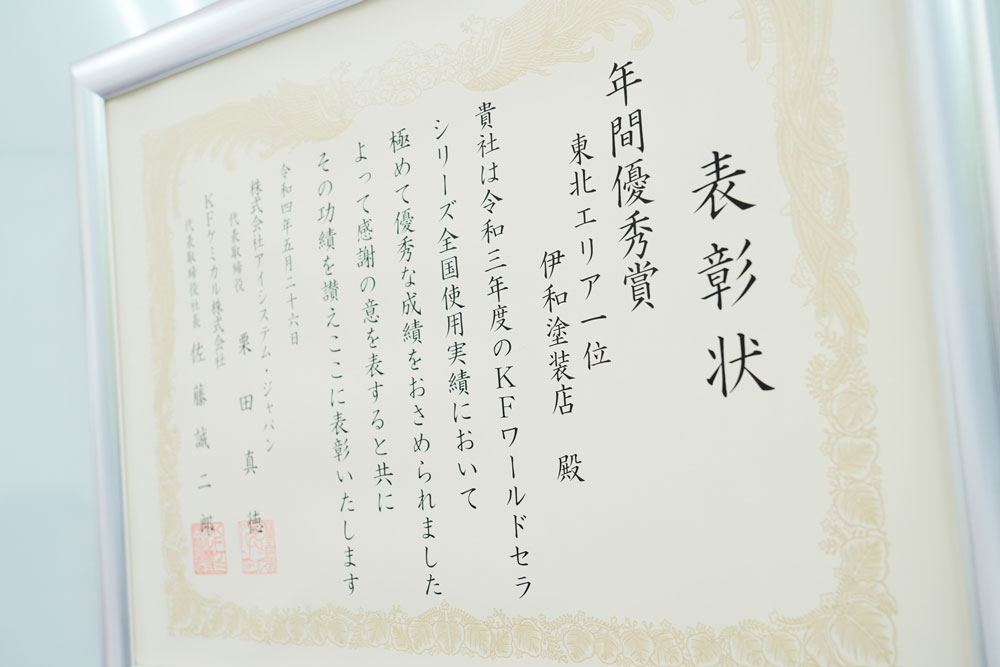 表彰状
年間優秀賞
東北エリア一位
伊和塗装店 殿
貴社は令和三年度のKFワールドセラ
シリーズ全国使用実績において
極めて優秀な成績をおさめられました
よって感謝の意を表すると共に
その功績を讃えここに表彰いたします
令和四年五月二十六日
株式会社アイシステム・ジャパン
代表取締役 栗田真徳
KFケミカル株式会社
代表取締役社長 佐藤誠二郎